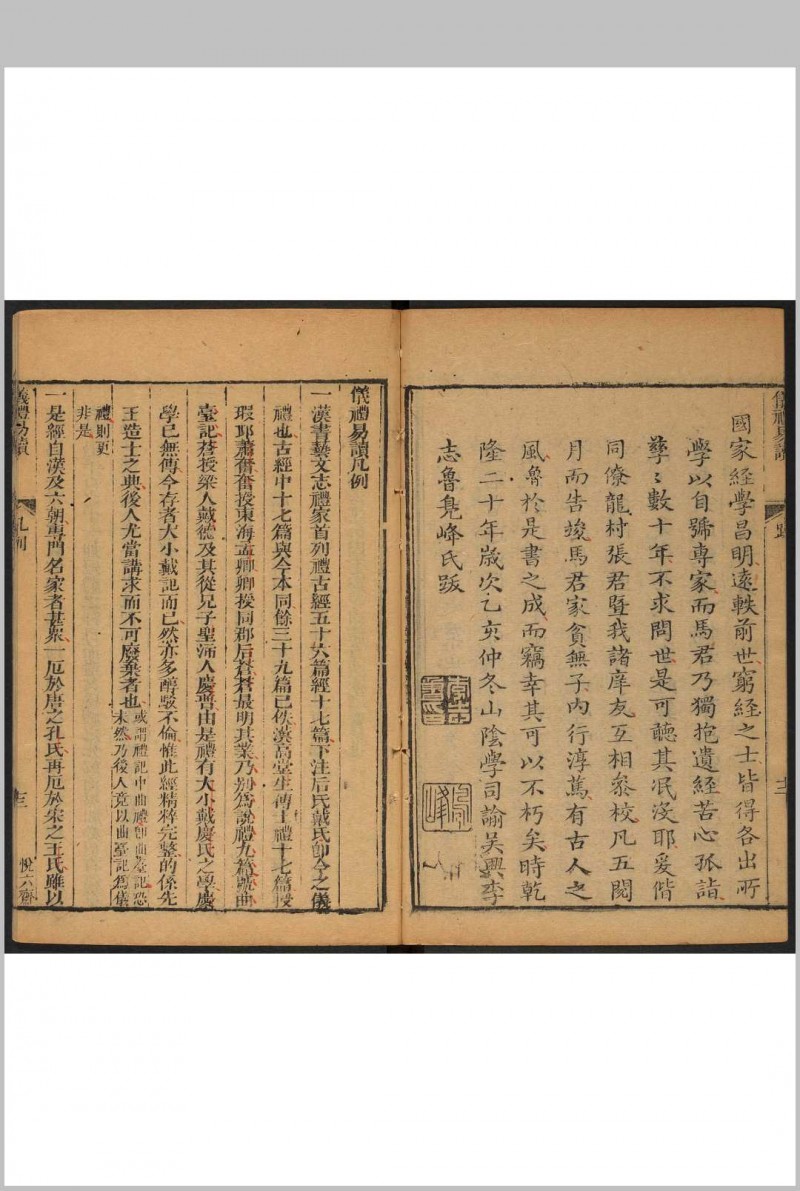 儀禮易讀
跋
十二
國家經學昌明遠軼前世窮經之士皆得各出所
學以自號專家而馬君乃獨抱遺經苦心孤詣
孳孳數十年不求問世是可聽其泯沒耶爰偕
同僚龍村張君暨我諸庠友互相叅校凡五閱
月而告竣馬君家貧無子內行淳篤有古人之
風魯於是書之成而竊幸其可以不朽矣時乾
隆二十年嵗次乙亥仲冬山陰學司諭吳興李
志魯凫峰氏跋
儀禮易讀凡例
一漢書藝文志禮家首列禮古經五十六篇經十七篇下注后氏戴氏卽今之儀
禮也古經中十七篇與今本同餘三十九篇已佚漢高堂生傳士禮十七篇授
瑕邱蕭奮奮授東海孟卿卿授同郡后蒼蒼最明其業乃別爲說禮九篇號曲
臺記蒼授梁人戴德及其從兄子聖沛人慶普由是禮有大小戴慶氏之學慶
學已無傳今存者大小戴記而已然亦多醇駁不倫惟此經精粹完整的係先
王造士之典後人尤當講求而不可廢棄者也或謂禮記中曲禮卽曲臺記恐
未然乃後人竟以曲臺記爲儀
禮則更
非是
一是經自漢及六朝專門名家者甚衆一厄於唐之孔氏再厄於宋之王氏雖以
儀禮易讀
凡例
十三
悅六齋